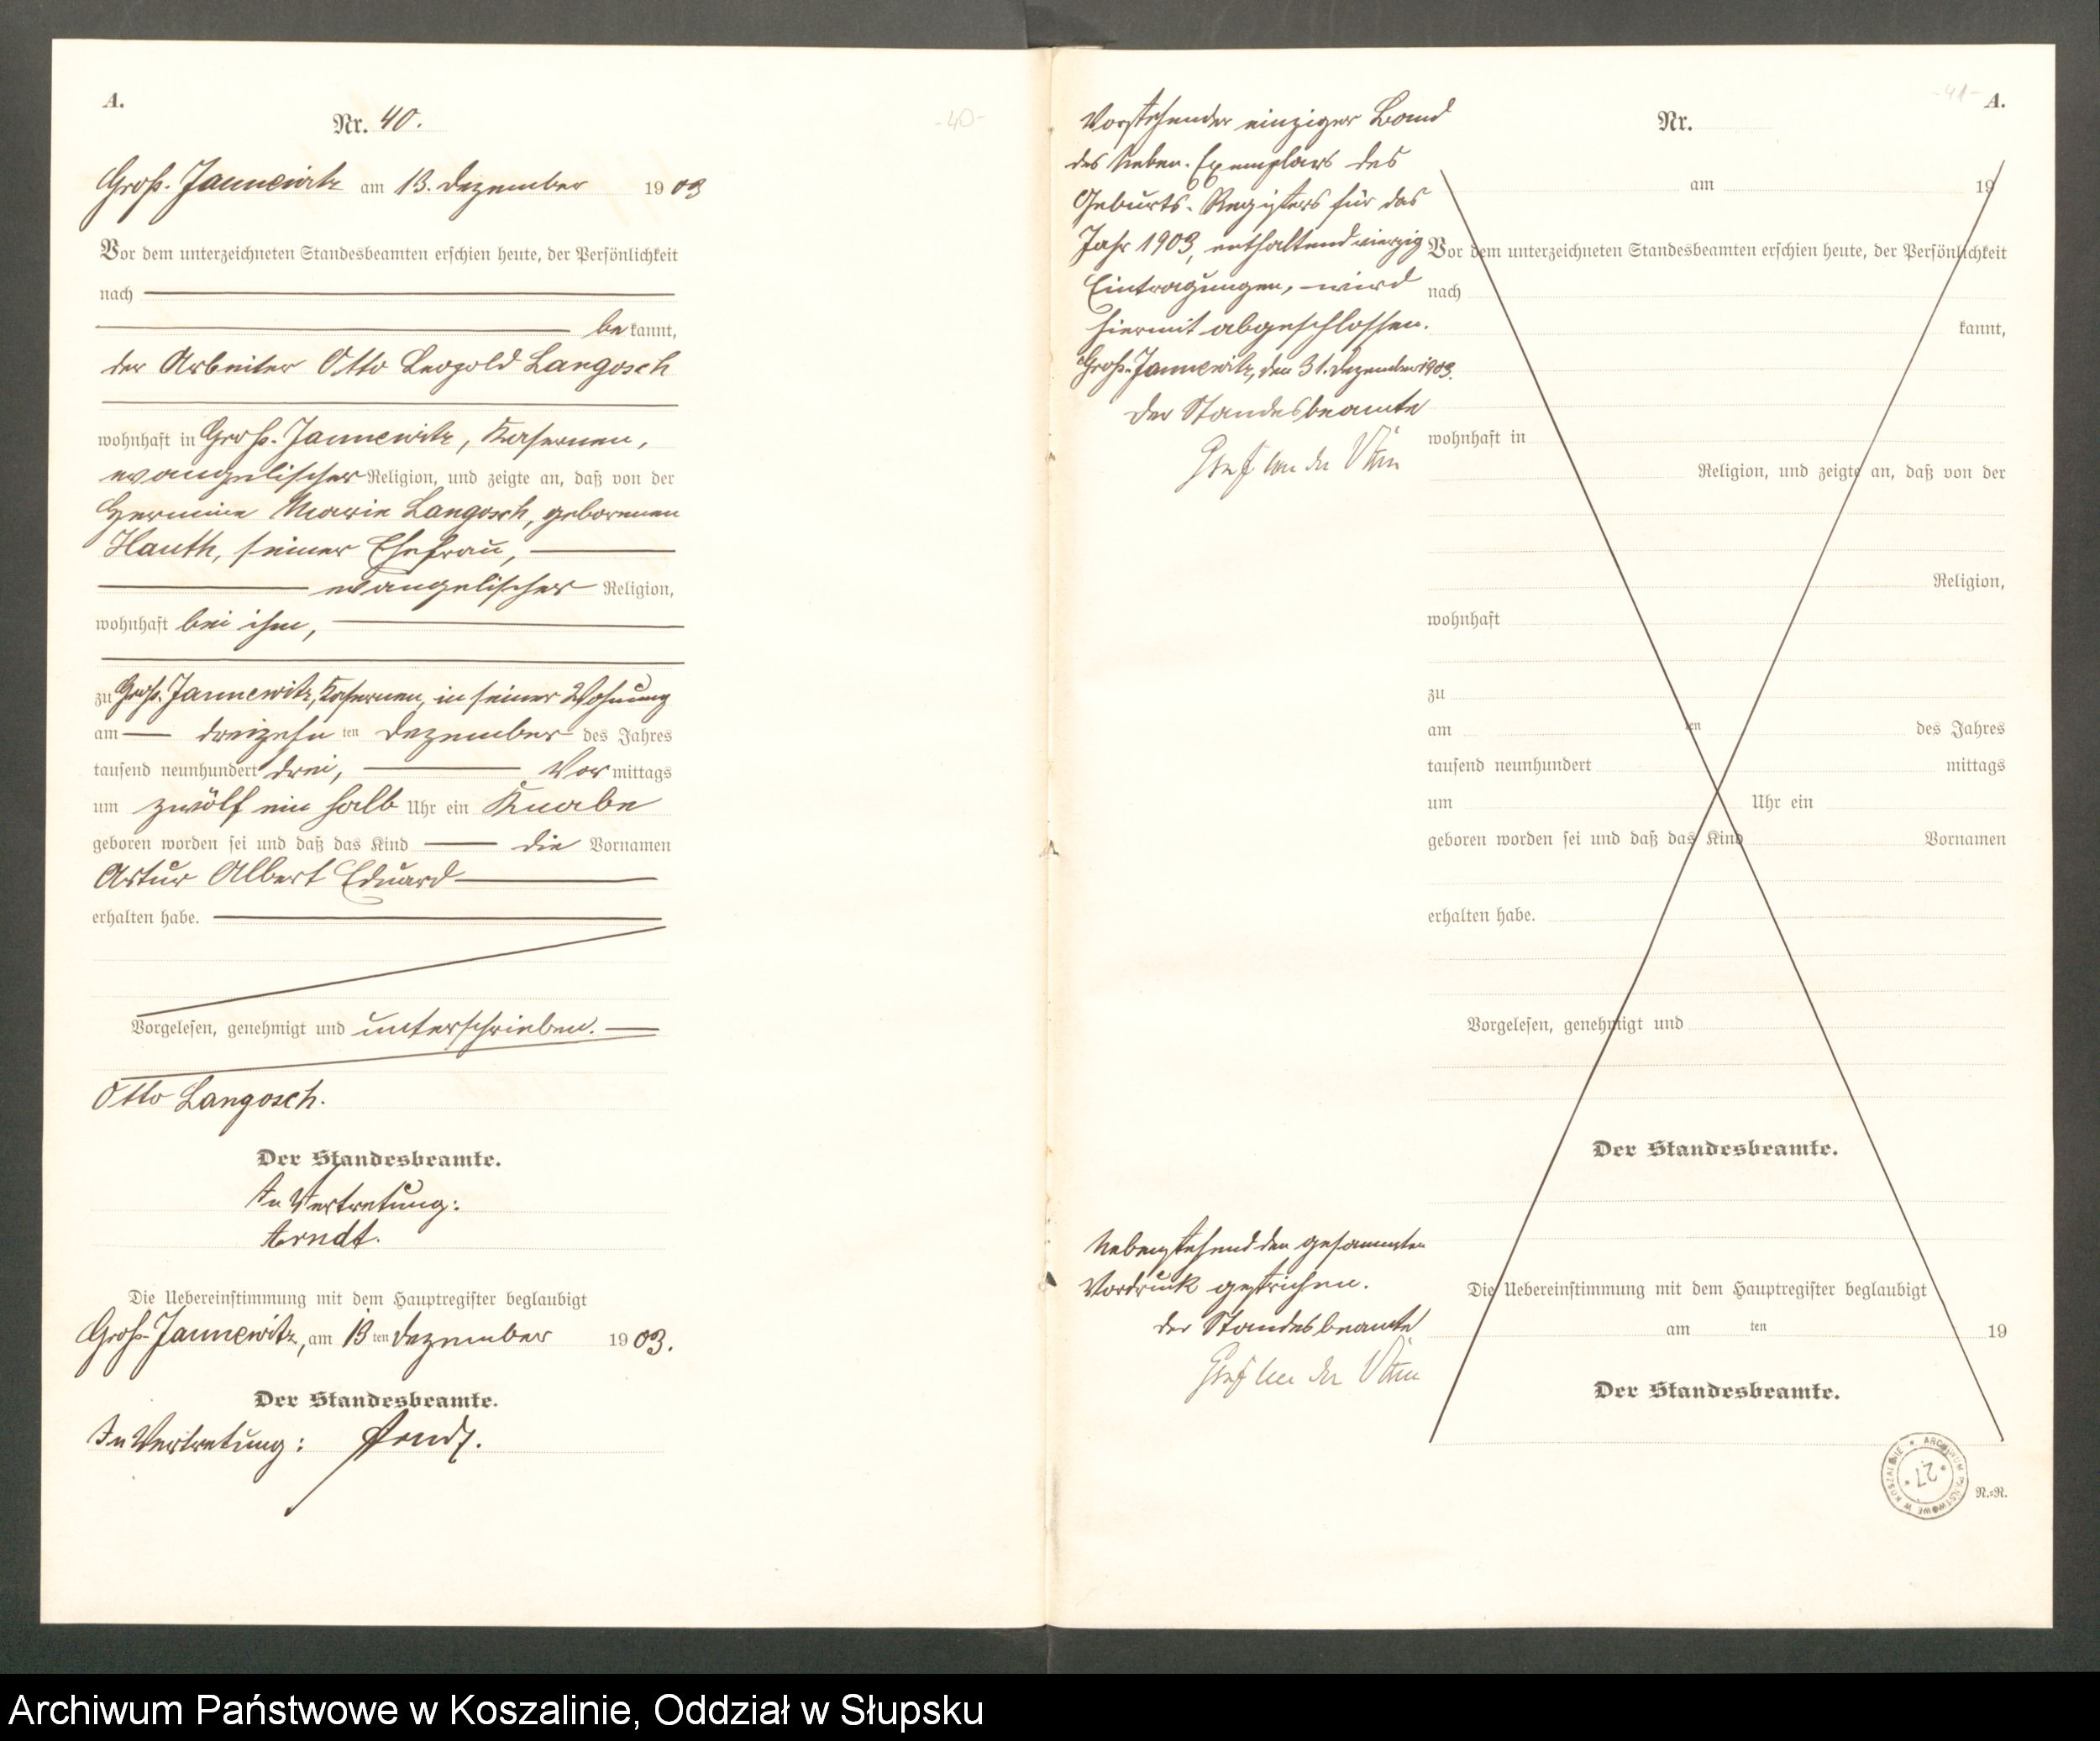 A.
Nr. 40.
-40-
Groß-Jannewitz am 13. Dezember 1903
Vor dem unterzeichneten Standesbeamten erschien heute, der Persönlichkeit
nach
bekannt,
der Arbeiter Otto Leopold Langosch
wohnhaft in Groß-Jannewitz, Kasernen,
evangelischer Religion, und zeigte an, daß von der
Hermine Marie Langosch, geborenen
Hauth, seiner Ehefrau,
evangelischer Religion,
wohnhaft bei ihm,
zu Groß-Jannewitz, Kasernen, in seiner Wohnung
am dreizehnten Dezember des Jahres
tausend neunhundert drei, Vormittags
um zwölf ein halb Uhr ein Knabe
geboren worden sei und daß das Kind die Vornamen
Artur Albert Eduard
erhalten habe.
Vorgelesen, genehmigt und unterschrieben.
Otto Langosch.
Der Standesbeamte.
In Vertretung:
Arndt.
Die Uebereinstimmung mit dem Hauptregister beglaubigt
Groß-Jannewitz, am 13ten Dezember 1903.
Der Standesbeamte.
In Vertretung: Arndt.
Vorstehender einziger Band
des Neben-Exemplars des
Geburts-Registers für das
Jahr 1903, enthaltend vierzig
Eintragungen, wird
hiermit abgeschlossen.
Groß-Jannewitz, den 31. Dezember 1903.
Der Standesbeamte
Graf von der
Nebenstehend den gesammten
Vordruck gestrichen.
Der Standesbeamte
Graf von der
-41- A.
Nr.
am 19
Vor dem unterzeichneten Standesbeamten erschien heute, der Persönlichkeit
nach
kannt,
wohnhaft in
Religion, und zeigte an, daß von der
Religion,
wohnhaft
zu
am ten des Jahres
tausend neunhundert mittags
um Uhr ein
geboren worden sei und daß das Kind Vornamen
erhalten habe.
Vorgelesen, genehmigt und
Der Standesbeamte.
Die Uebereinstimmung mit dem Hauptregister beglaubigt
am ten 19
Der Standesbeamte.
ARCHIWUM PAŃSTWOWE W KOSZALINIE
27
N.=R.
Archiwum Państwowe w Koszalinie, Oddział w Słupsku